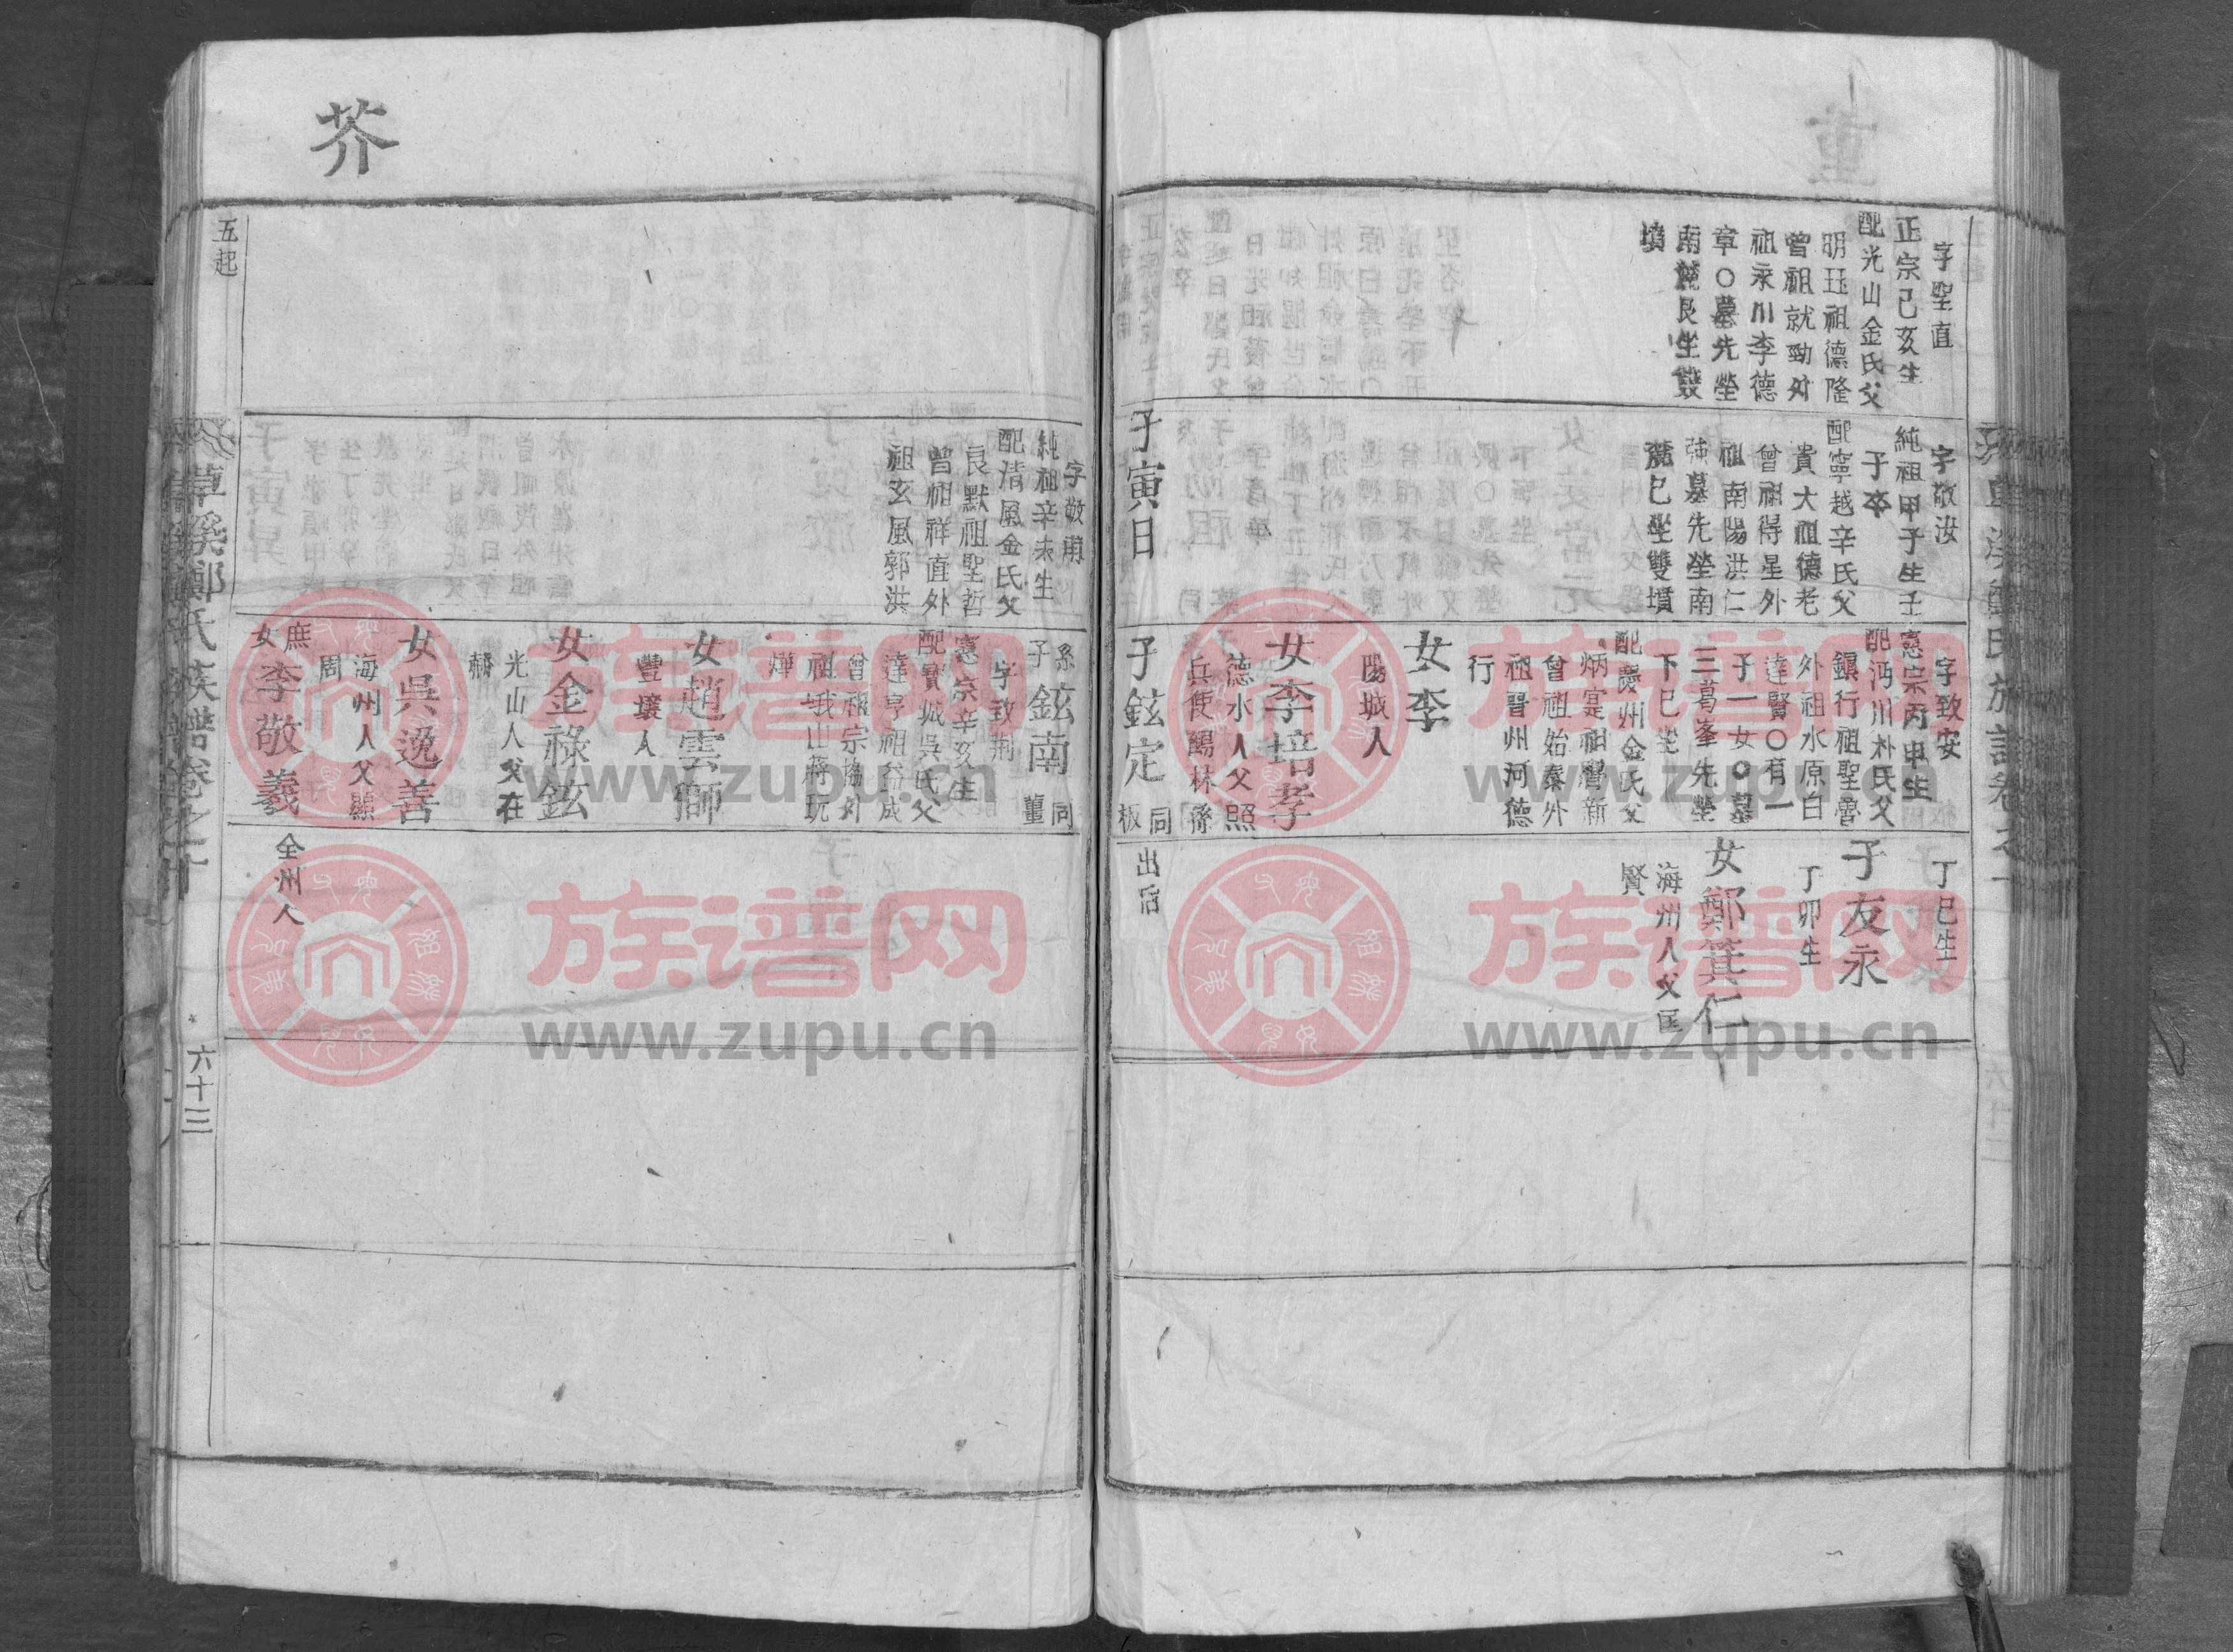 字聖直
正宗己亥生
配光山金氏父
明珏祖德隆
曾祖就勁外
祖永川李德
章〇墓先塋
南麓艮坐雙
墳
字敬汝
純祖甲子生壬
子卒
配寧越辛氏父
貴大祖德老
曾祖得星外
祖南陽洪仁
強墓先塋南
麓巳坐雙墳
子寅日
字致安
憲宗丙申生
配沔川朴氏父
鎭行祖聖魯
外祖水原白
達賢〇有一
子一女〇墓
三葛峯先塋
下巳坐
配慶州金氏父
炳寔祖響新
曾祖始泰外
祖晋州河德
行
女李
陽城人
女李培孝
德水人父照
兵使賜林孫
子鉉定
同
板
丁巳生
子友永
丁卯生
女鄭箕仁
海州人父匡
賢
出后
芥
字敬甫
純祖辛未生
配清風金氏父
良默祖聖哲
曾祖祥直外
祖玄風郭洪
孫
子鉉南
同
董
字致荆
憲宗辛亥生
配寶城吳氏父
達亨祖 成
曾祖宗協外
祖峨山蔣玩
燁
女趙雲師
豐壤人
女金祿鉉
光山人父在
女吳逸善
海州人父顯
周
庶
女李敬義
全州人
五起
草溪鄭氏族譜卷之十
六十三
族谱网
www.zupu.cn
族谱网
www.zupu.cn
族谱网
www.zupu.cn
族谱网
www.zupu.cn